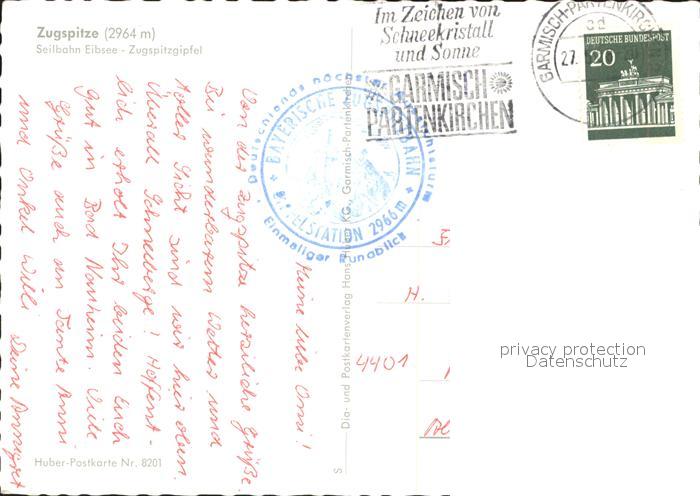 Zugspitze (2964 m)
Seilbahn Eibsee - Zugspitzgipfel
Im Zeichen von
Schneekristall
und Sonne
GARMISCH
PARTENKIRCHEN
GARMISCH-PARTENKIRCH
27.
DEUTSCHE BUNDESPOST
20
Deutschlands höchster
BAYERISCHE ZUGSPITZBAHN
GIPFELSTATION 2966 m
Einmaliger Rundblick
Meine liebe Omi!
Von der Zugspitze herzliche Grüße.
Bei wunderbarem Wetter und
toller Sicht sind wir hier oben.
Überall Schneeberge! Hoffent-
lich erholt Ihr beiden Euch
gut in Bad Nauheim. Viele
Grüße auch an Tante Anni
und Onkel Willi Deine Annegret
Dia- und Postkartenverlag Hans Huber KG., Garmisch-Partenkirchen
S
H.
4401
privacy protection
Datenschutz
Huber-Postkarte Nr. 8201